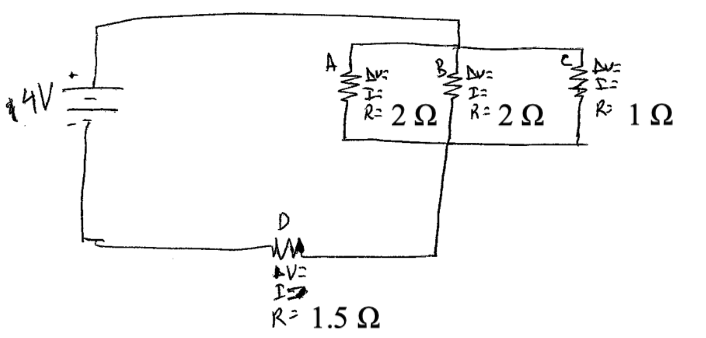 4V
+
-
A
ΔV=
I=
R= 2 Ω
B
ΔV=
I=
R= 2 Ω
C
ΔV=
I=
R= 1 Ω
D
ΔV=
I=
R= 1.5 Ω